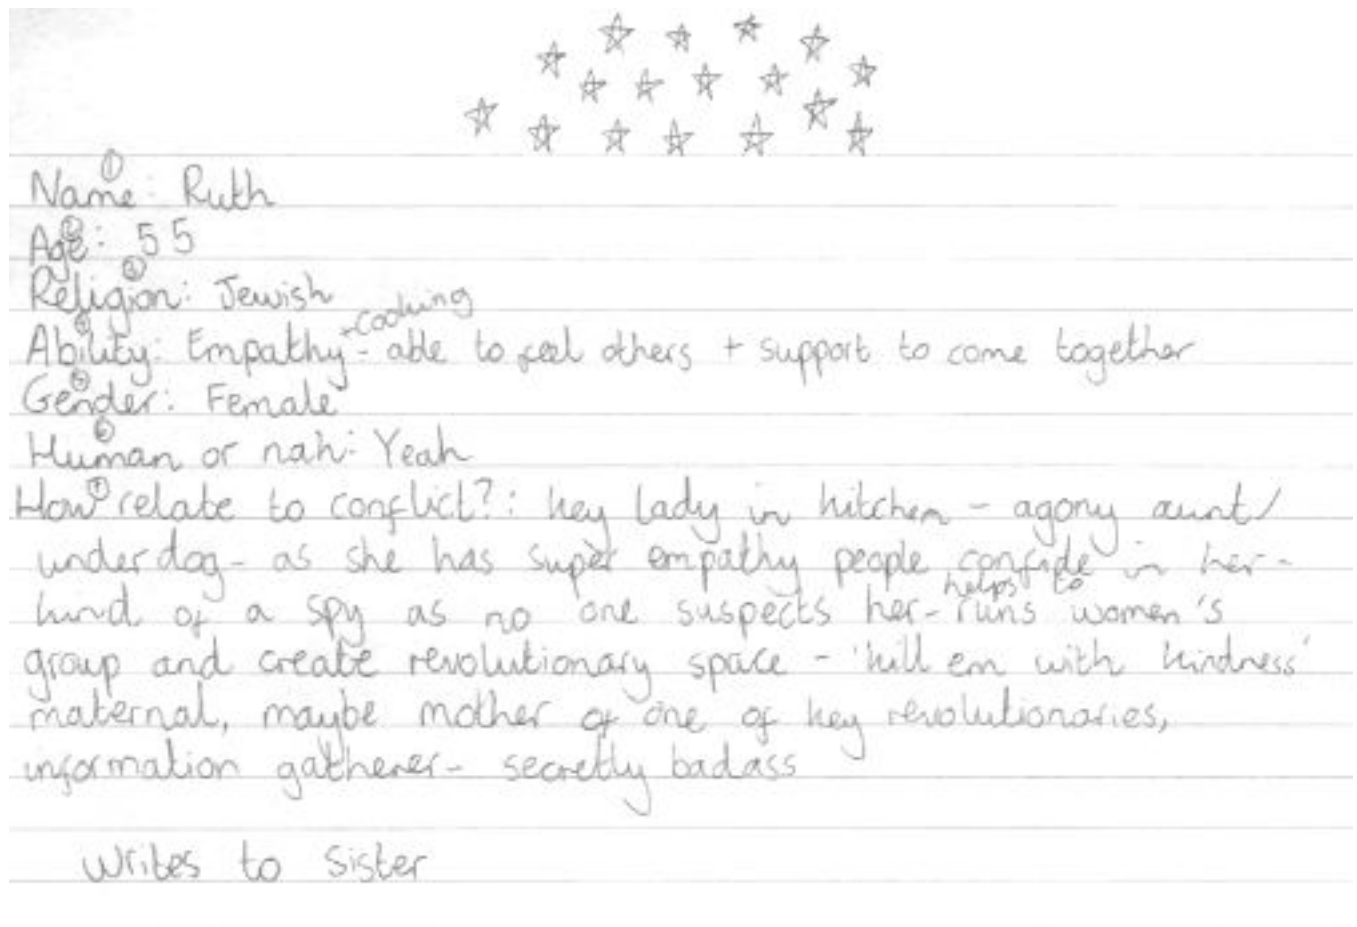 ① Name: Ruth
② Age: 55
③ Religion: Jewish
④ Ability: Empathy + cooking - able to feel others + support to come together
⑤ Gender: Female
⑥ Human or nah: Yeah
⑦ How relate to conflict?: key lady in kitchen - agony aunt/
underdog - as she has super empathy people confide in her -
kind of a spy as no one suspects her - helps to runs women's
group and create revolutionary space - 'kill em with kindness'
maternal, maybe mother of one of key revolutionaries,
information gatherer - secretly badass
writes to sister